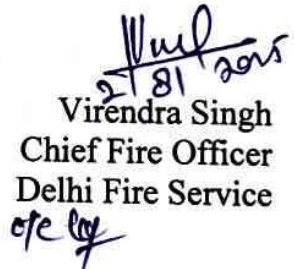 2/8/2015
Virendra Singh
Chief Fire Officer
Delhi Fire Service